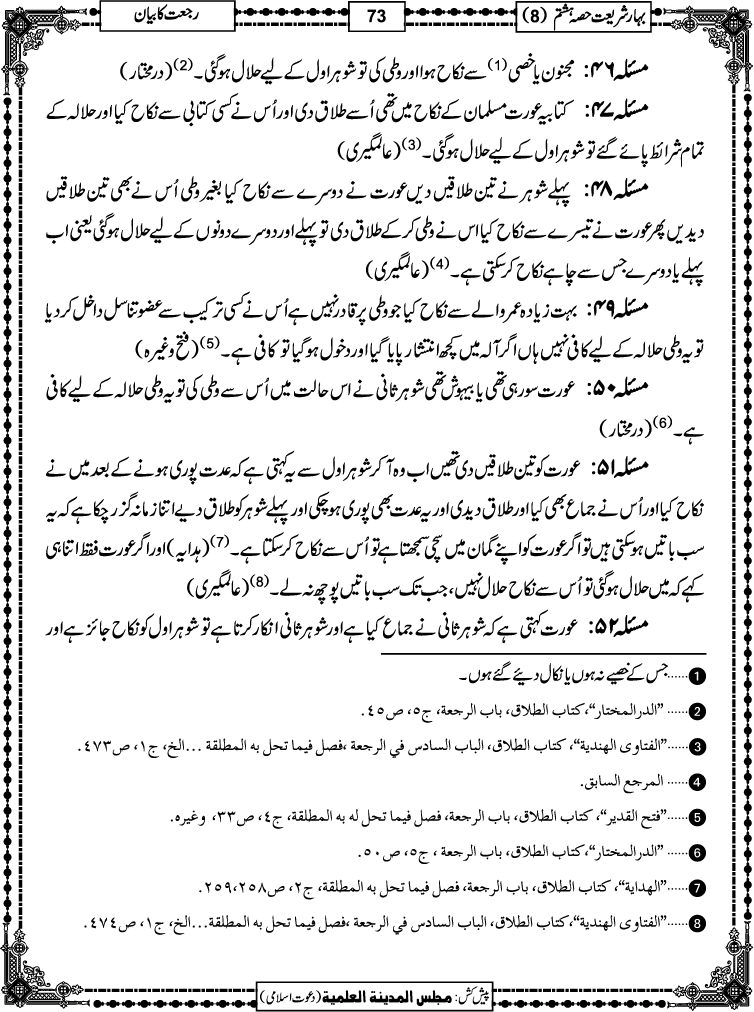 بہار شریعت حصہ ہشتم (8)
73
رجعت کا بیان
مسئلہ ۴۶: مجنون یا خصی (1) سے نکاح ہوا اور وطی کی تو شوہر اول کے لیے حلال ہوگئی۔ (2) (درمختار)
مسئلہ ۴۷: کتابیہ عورت مسلمان کے نکاح میں تھی اُسے طلاق دی اور اُس نے کسی کتابی سے نکاح کیا اور حلالہ کے
تمام شرائط پائے گئے تو شوہر اول کے لیے حلال ہوگئی۔ (3) (عالمگیری)
مسئلہ ۴۸: پہلے شوہر نے تین طلاقیں دیں عورت نے دوسرے سے نکاح کیا بغیر وطی اُس نے بھی تین طلاقیں
دیدیں پھر عورت نے تیسرے سے نکاح کیا اس نے وطی کرکے طلاق دی تو پہلے اور دوسرے دونوں کے لیے حلال ہوگئی یعنی اب
پہلے یا دوسرے جس سے چاہے نکاح کرسکتی ہے۔ (4) (عالمگیری)
مسئلہ ۴۹: بہت زیادہ عمر والے سے نکاح کیا جو وطی پر قادر نہیں ہے اُس نے کسی ترکیب سے عضو تناسل داخل کر دیا
تو یہ وطی حلالہ کے لیے کافی نہیں ہاں اگر آلہ میں کچھ انتشار پایا گیا اور دخول ہوگیا تو کافی ہے۔ (5) (فتح وغیرہ)
مسئلہ ۵۰: عورت سو رہی تھی یا بیہوش تھی شوہر ثانی نے اس حالت میں اُس سے وطی کی تو یہ وطی حلالہ کے لیے کافی
ہے۔ (6) (درمختار)
مسئلہ ۵۱: عورت کو تین طلاقیں دی تھیں اب وہ آ کر شوہر اول سے یہ کہتی ہے کہ عدت پوری ہونے کے بعد میں نے
نکاح کیا اور اُس نے جماع بھی کیا اور طلاق دیدی اور یہ عدت بھی پوری ہوچکی اور پہلے شوہر کو طلاق دیے اتنا زمانہ گزر چکا ہے کہ یہ
سب باتیں ہوسکتی ہیں تو اگر عورت کو اپنے گمان میں سچی سمجھتا ہے تو اُس سے نکاح کرسکتا ہے۔ (7) (ہدایہ) اور اگر عورت فقط اتنا ہی
کہے کہ میں حلال ہوگئی تو اُس سے نکاح حلال نہیں، جب تک سب باتیں پوچھ نہ لے۔ (8) (عالمگیری)
مسئلہ ۵۲: عورت کہتی ہے کہ شوہر ثانی نے جماع کیا ہے اور شوہر ثانی انکار کرتا ہے تو شوہر اول کو نکاح جائز ہے اور
1 ......جس کے خصیے نہ ہوں یا نکال دیئے گئے ہوں۔
2 ...... ”الدرالمختار“، کتاب الطلاق، باب الرجعة، ج٥، ص٤٥.
3 ......”الفتاوی الهندية“، کتاب الطلاق، الباب السادس في الرجعة، فصل فيما تحل به المطلقة ...الخ، ج١، ص٤٧٣.
4 ...... المرجع السابق.
5 ......”فتح القدير“، کتاب الطلاق، باب الرجعة، فصل فيما تحل له به المطلقة، ج٤، ص٣٣، وغيره.
6 ...... ”الدرالمختار“، کتاب الطلاق، باب الرجعة، ج٥، ص٥٠.
7 ......”الهداية“، کتاب الطلاق، باب الرجعة، فصل فيما تحل به المطلقة، ج٢، ص٢٥٨،٢٥٩.
8 ......”الفتاوی الهندية“، کتاب الطلاق، الباب السادس في الرجعة، فصل فيما تحل به المطلقة...الخ، ج١، ص٤٧٤.
پیش کش: مجلس المدينة العلمية (دعوت اسلامی)